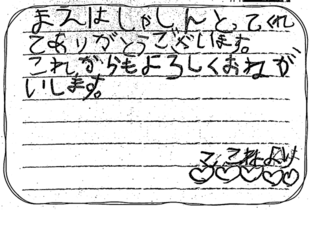 まえはしゃしんとってくれ
てありがとうございます。
これからもよろしくおねが
いします。
より